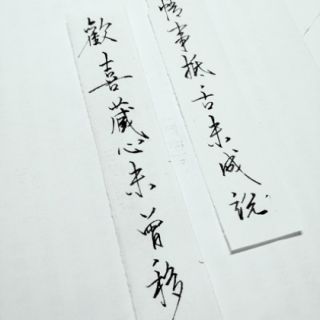 情事抵舌未成説
歡喜藏心未曾移